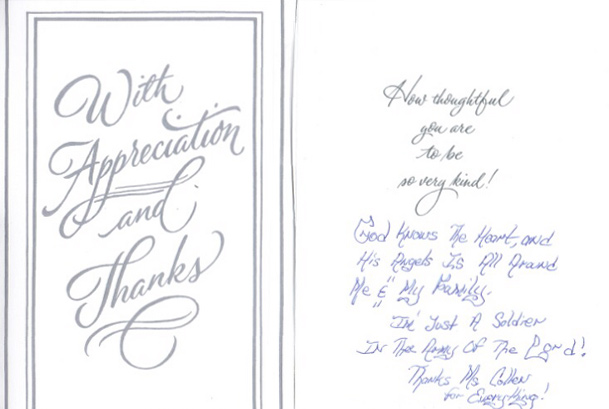 With
Appreciation
and
Thanks
How thoughtful
you are
to be
so very kind!
God Knows The Heart, and
His Angels Is All Around
Me & "My Family.
"I'm" Just A Soldier
In The Army Of The Lord!
Thanks Ms Collen
for Everything!